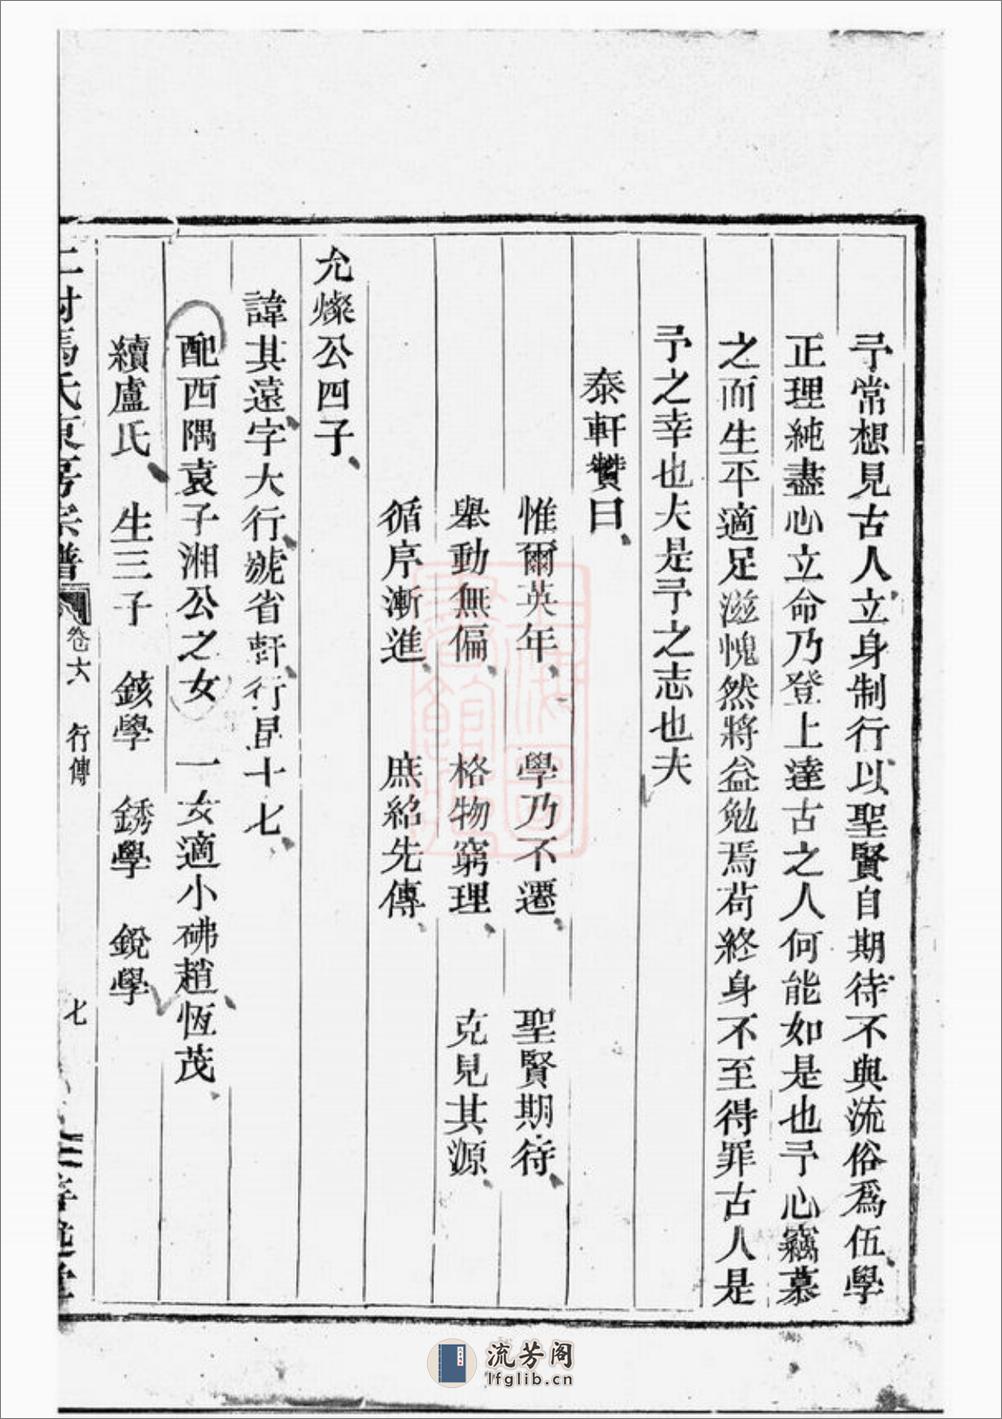 予常想見古人立身制行以聖賢自期待不與流俗爲伍學
正理純盡心立命乃登上達古之人何能如是也予心竊慕
之而生平適足滋愧然將益勉焉苟終身不至得罪古人是
予之幸也夫是予之志也夫
泰軒贊曰
惟爾英年 學乃不遷 聖賢期待
舉動無偏 格物窮理 克見其源
循序漸進 庶紹先傳
允燦公四子
諱其遠字大行號省軒行昆十七
配西隅袁子湘公之女 一女適小砩趙恆茂
續盧氏 生三子 錢學 銹學 銳學
馬氏東房宗譜 卷六 行傳 七
上海圖書館藏
流芳阁
lfglib.cn